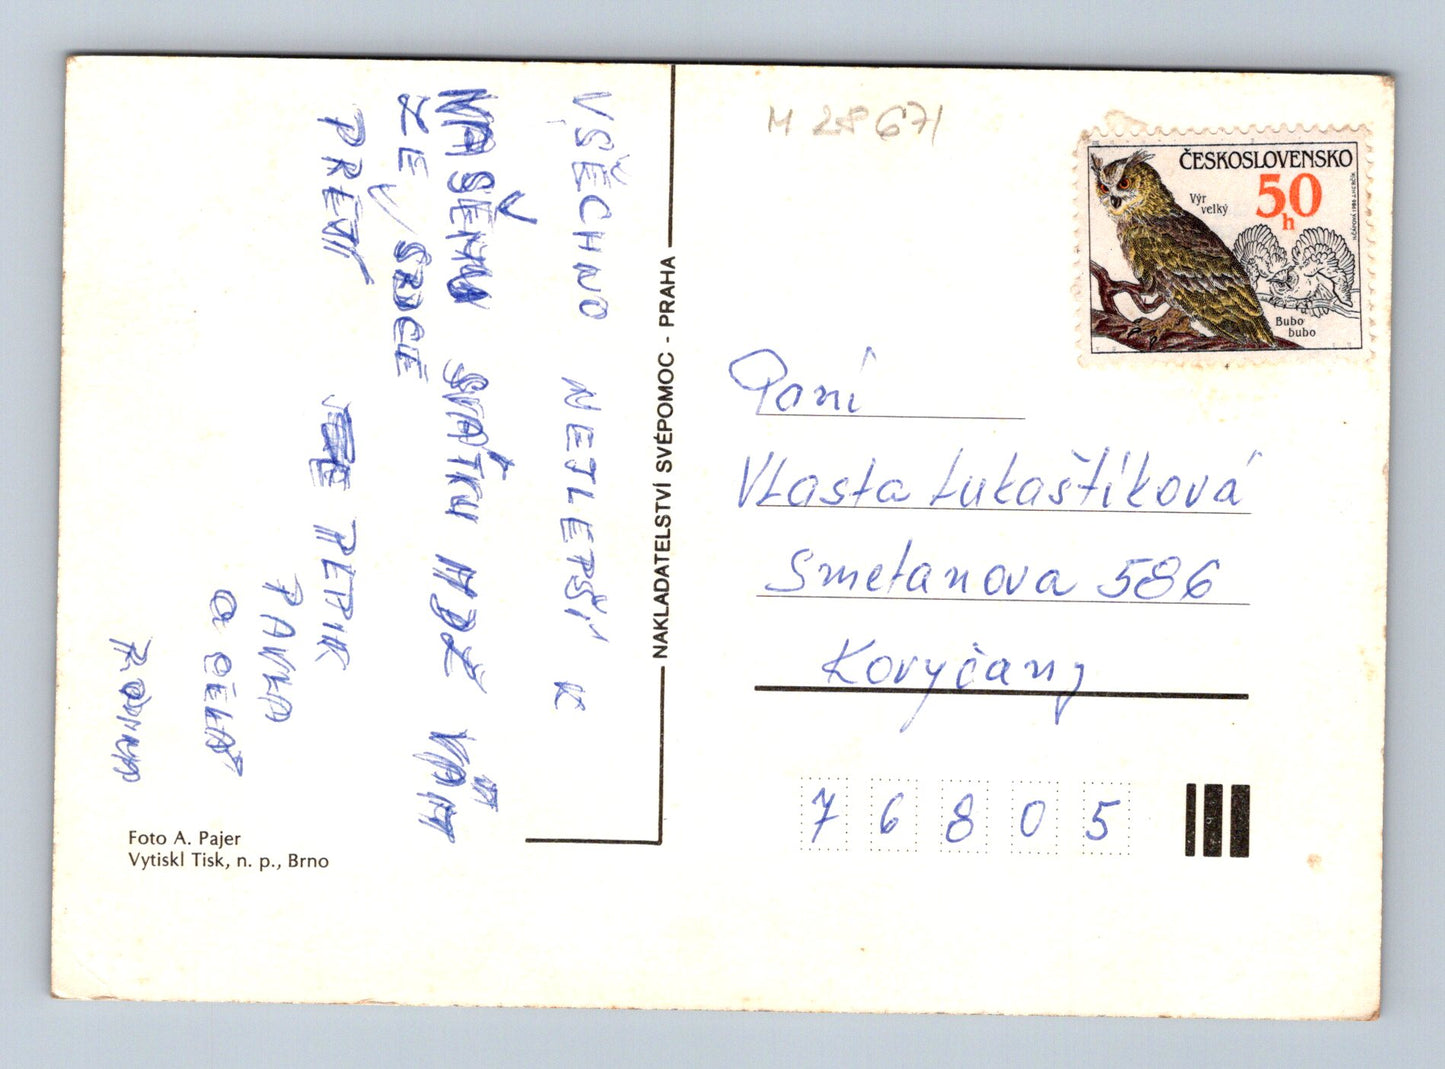 VŠĚCHNO NETLEPŠÍ K
NAŠĚMU SVÁTKU MDŽ VÁM
ZE SRDCE
PŘEJÍ
PEPIK
PAVLA
a CĚLÁ
NAKLADATELSTVÍ SVÉPOMOC - PRAHA
Foto A. Pajer
Vytiskl Tisk, n. p., Brno
M 28 671
ČESKOSLOVENSKO
50
h
Výr
velký
Bubo
bubo
Paní
Vlasta Lukaštíková
Smetanova 586
Koryčany
76805